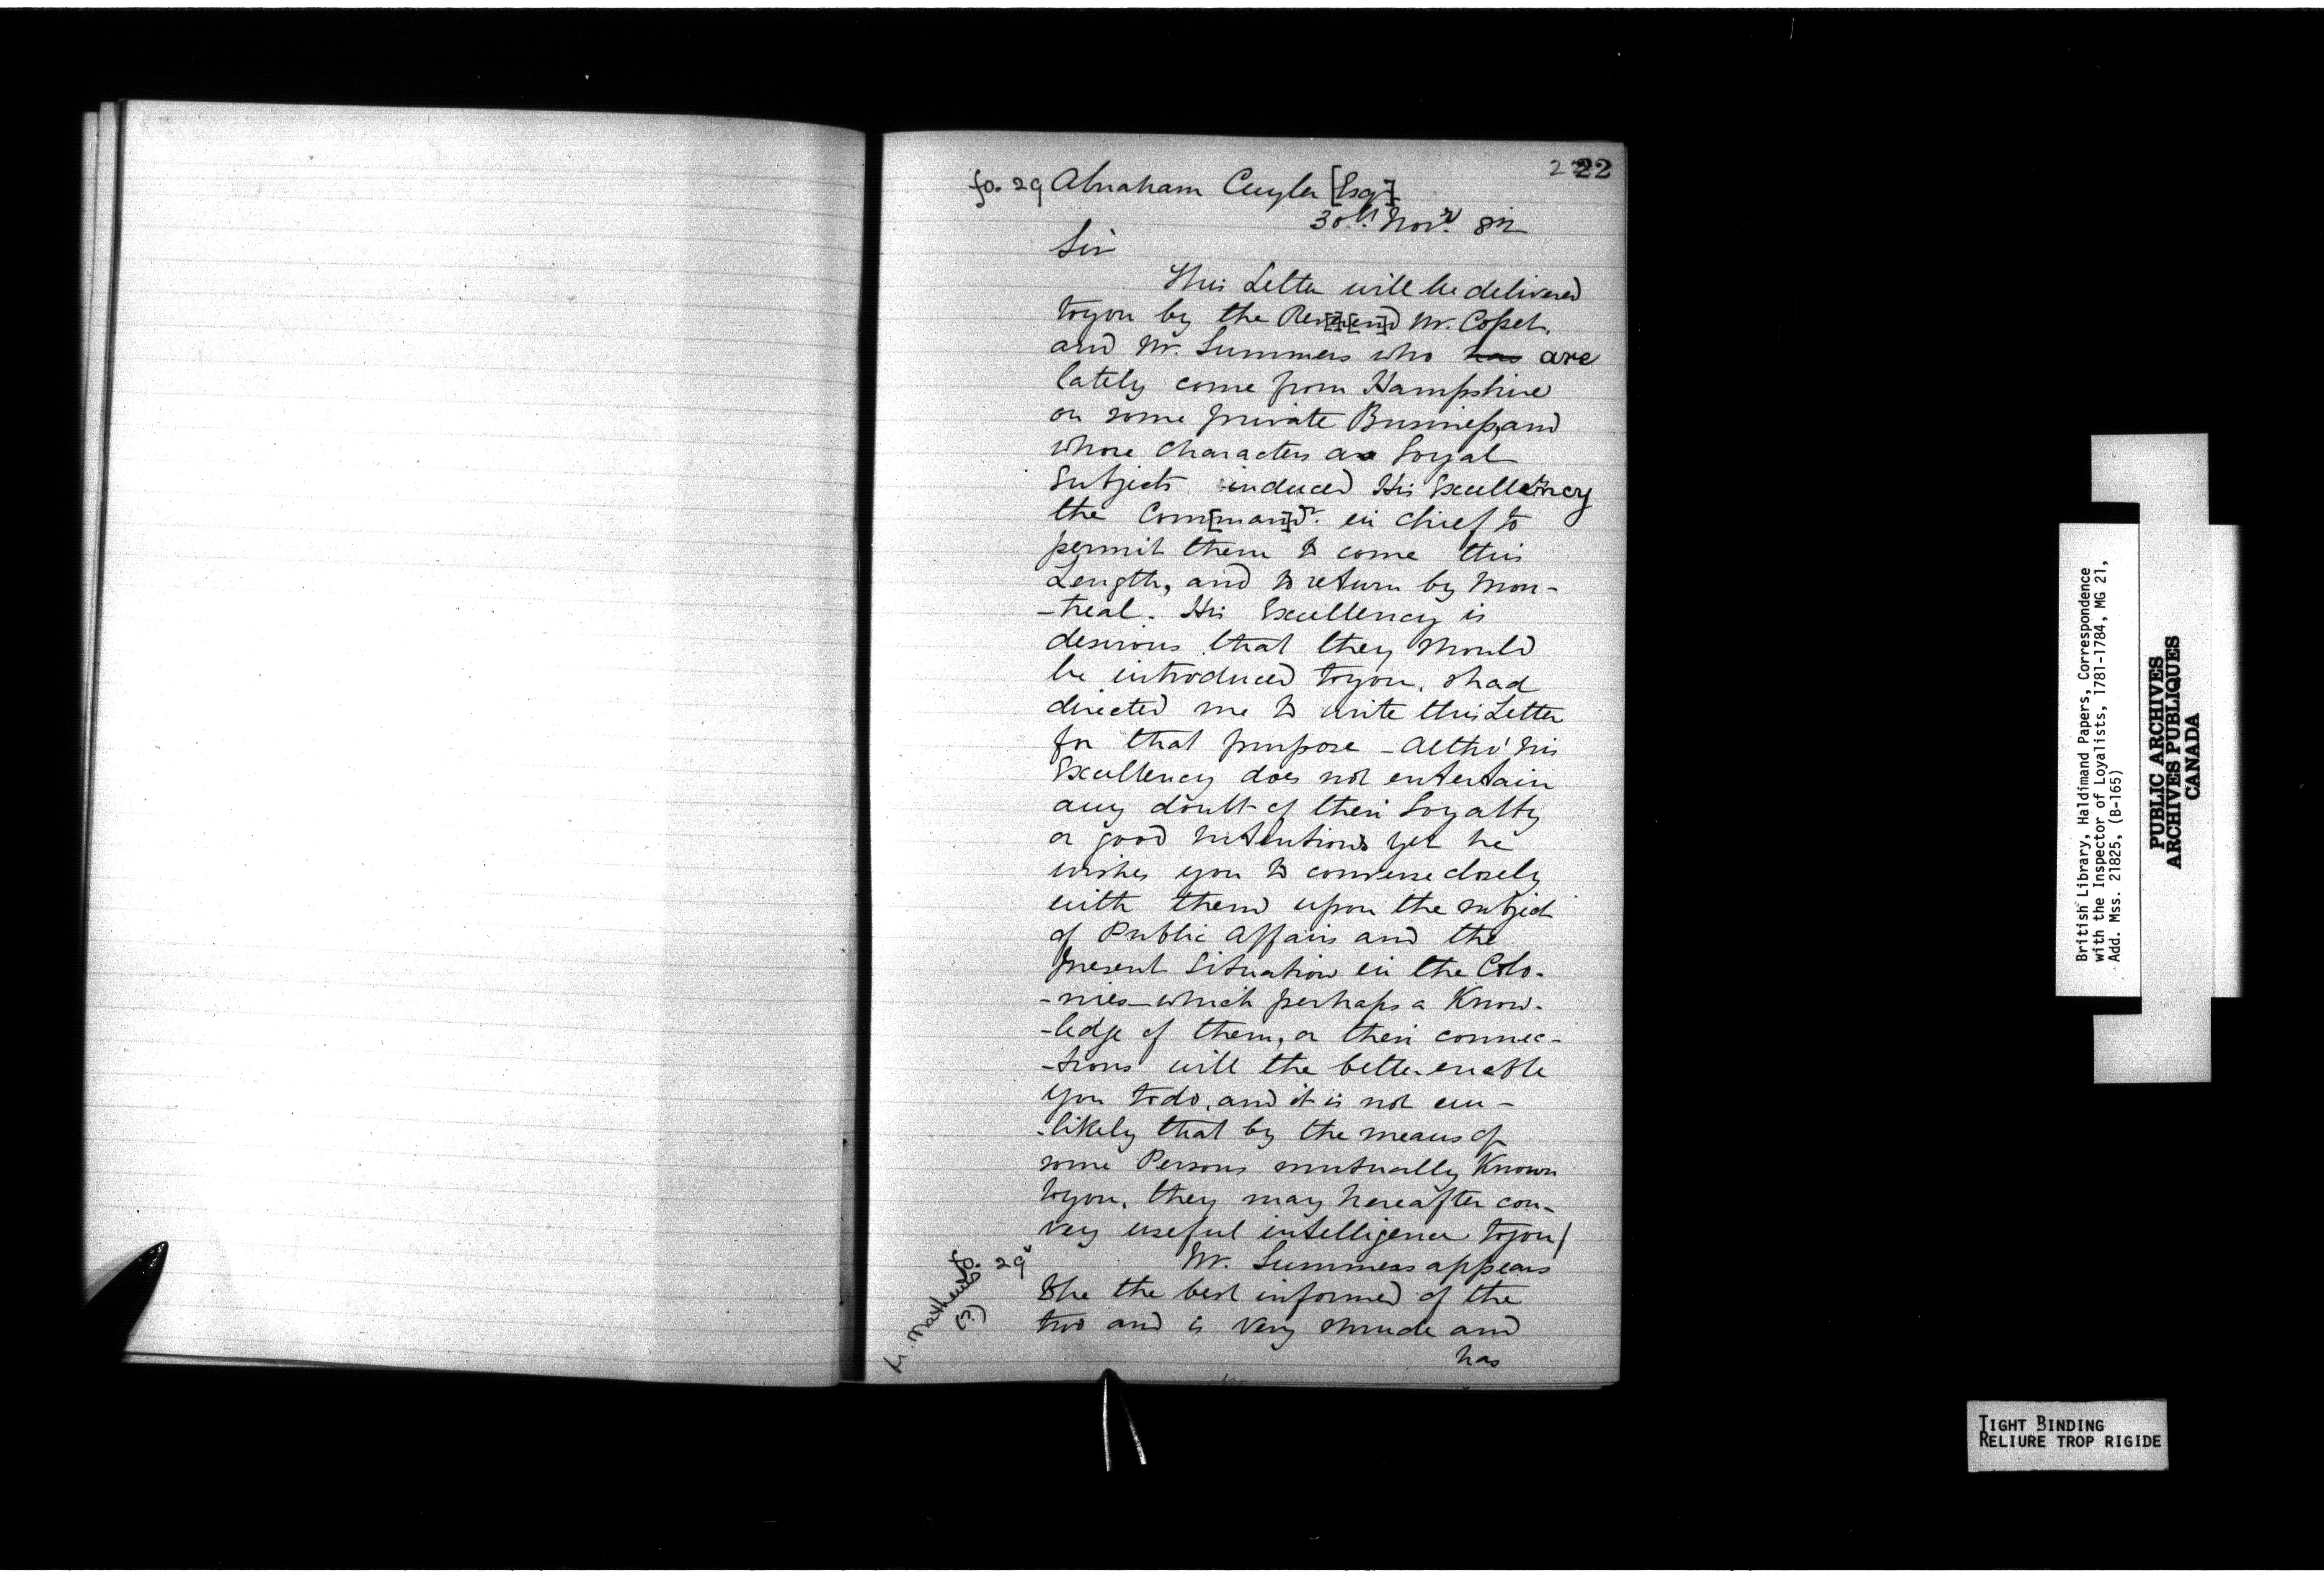 22
fo. 29 Abraham Cuyler [Esqr]
30th Novr. 82
Sir
This Letter will be delivered
to you by the Rev[er]end Mr. Coset,
and Mr. Summers who has are
lately come from Hampshire
on some private Business, and
whose Characters as Loyal
Subjects induced His Excellency
the Com[man]dr. in chief to
permit them to come this
Length, and to return by Mon-
-treal. His Excellency is
desirous that they should
be introduced to you, & had
directed me to write this Letter
for that purpose - altho' his
Excellency does not entertain
any doubt of their Loyalty
or good intentions yet he
wishes you to converse closely
with them upon the subject
of Public Affairs and the
present Situation in the Colo-
-nies - which perhaps a Know-
-ledge of them, or their connec-
-tions will the better enable
you to do, and it is not un-
-likely that by the means of
some Persons mutually Known
to you, they may hereafter con-
vey useful intelligence to you/
fo. 29v Mr. Summers appears
to be the best informed of the
two and is very shrude and
has
R. Mathews
(?)
British Library, Haldimand Papers, Correspondence
with the Inspector of Loyalists, 1781-1784, MG 21,
Add. Mss. 21825, (B-165)
PUBLIC ARCHIVES
ARCHIVES PUBLIQUES
CANADA
TIGHT BINDING
RELIURE TROP RIGIDE